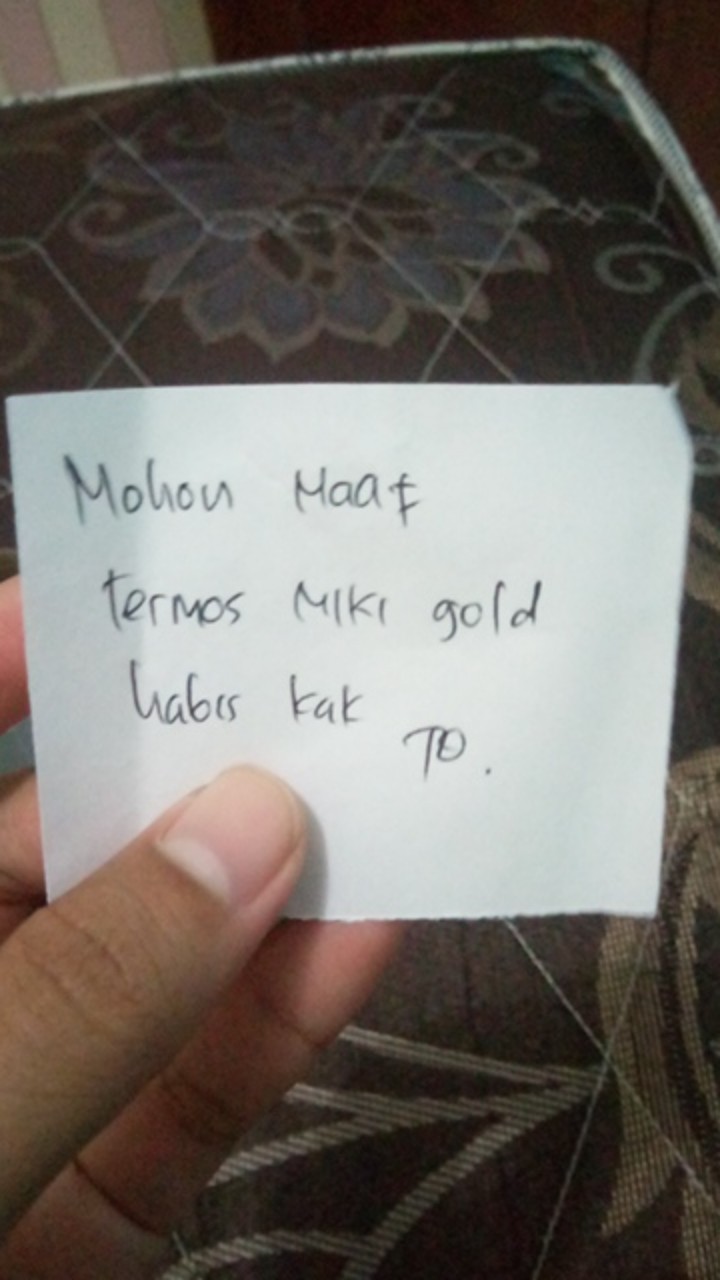 Mohon Maaf
termos Miki gold
habis kak
TO.